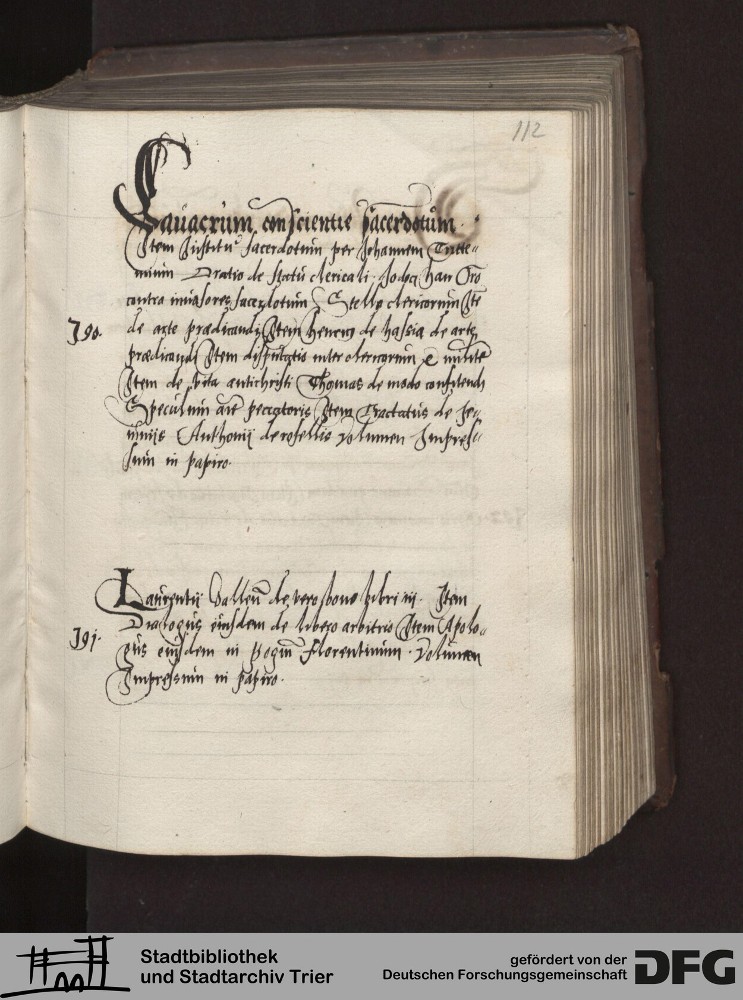 112
Lauacrum conscientie sacerdotum.
Item Institu sacerdotum per Johannem
Oratio de statu clericali
contra inuasores sacerdotum Stella clericorum Ite
790. de arte prædicandi Item Henricus de hassia de arte
prædicandi Item disputatio inter clericorum & militē
Item de vita antichristi Thomas de modo confitendi
Speculum peccatoris Item Tractatus de Je-
iunijs Anthonij de rosellis Volumen Impres-
sum in papiro.
Laurentij Vallen de vero bono libri iij. Item
Dialogus eiusdem de libero arbitrio Item Apolo-
791. gus eiusdem in pogiū florentinum. Volumen
Impressum in papiro.
Stadtbibliothek
und Stadtarchiv Trier
gefördert von der
Deutschen Forschungsgemeinschaft
DFG